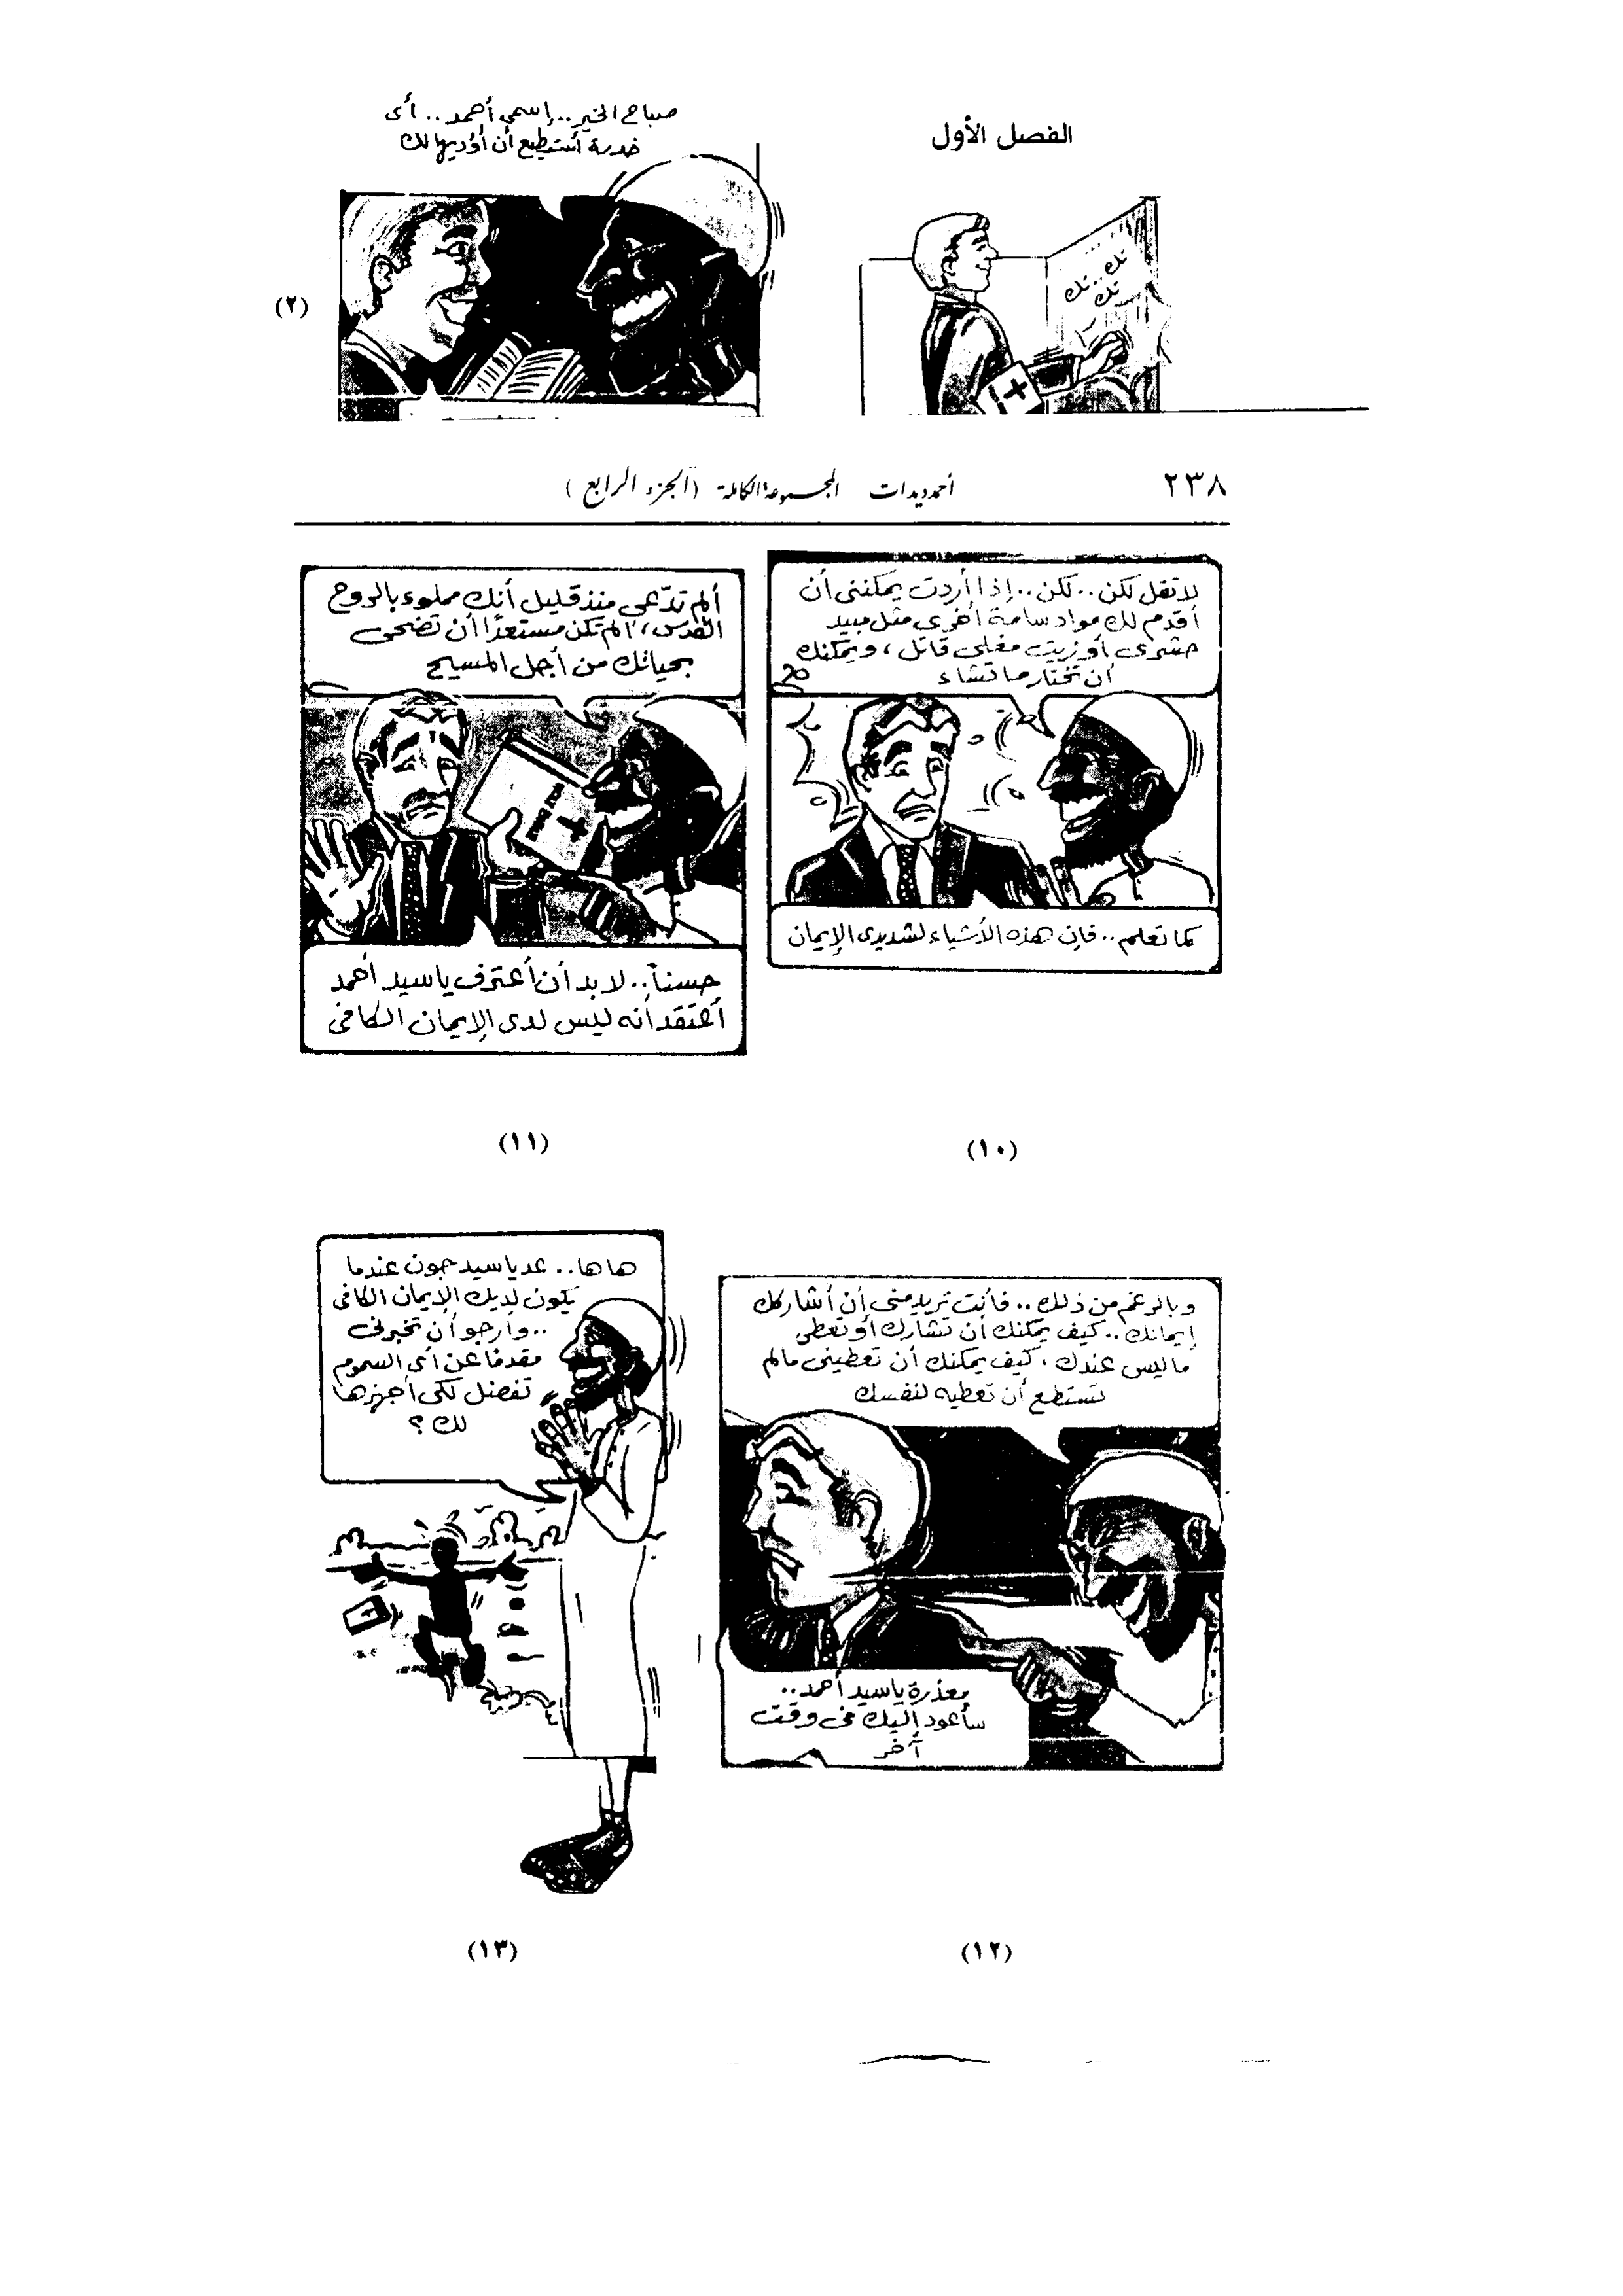 الفصل الأول
تك..تك
تك
صباح الخير..إسمى أحمد..أى
خدمة أستطيع أن أؤديها لك
(٢)
٢٣٨
أحمد ديدات المجموعة الكاملة (الجزء الرابع)
لا تقل لكن..لكن..إذا أردت يمكننى أن
أقدم لك مواد سامة أخرى مثل مبيد
حشرى أو زيت مغلى قاتل، ويمكنك
أن تختار ما تشاء
كما تعلم..فإن هذه الأشياء لشديدى الإيمان
(١٠)
ألم تدّعى منذ قليل أنك مملوء بالروح
القدس، ألم تكن مستعدًا أن تضحى
بحياتك من أجل المسيح
حسناً..لا بد أن أعترف يا سيد أحمد
أعتقد أنه ليس لدى الإيمان الكافى
(١١)
وبالرغم من ذلك..فأنت تريد منى أن أشاركك
إيمانك..كيف يمكنك أن تشارك أو تعطى
ما ليس عندك، كيف يمكنك أن تعطينى مالم
تستطع أن تعطيه لنفسك
معذرة يا سيد أحمد..
سأعود إليك فى وقت
آخر
(١٢)
ها ها..عد يا سيد جون عندما
يكون لديك الإيمان الكافى
..وأرجو أن تخبرنى
مقدمًا عن أى السموم
تفضل لكى أجهزها
لك؟
(١٣)